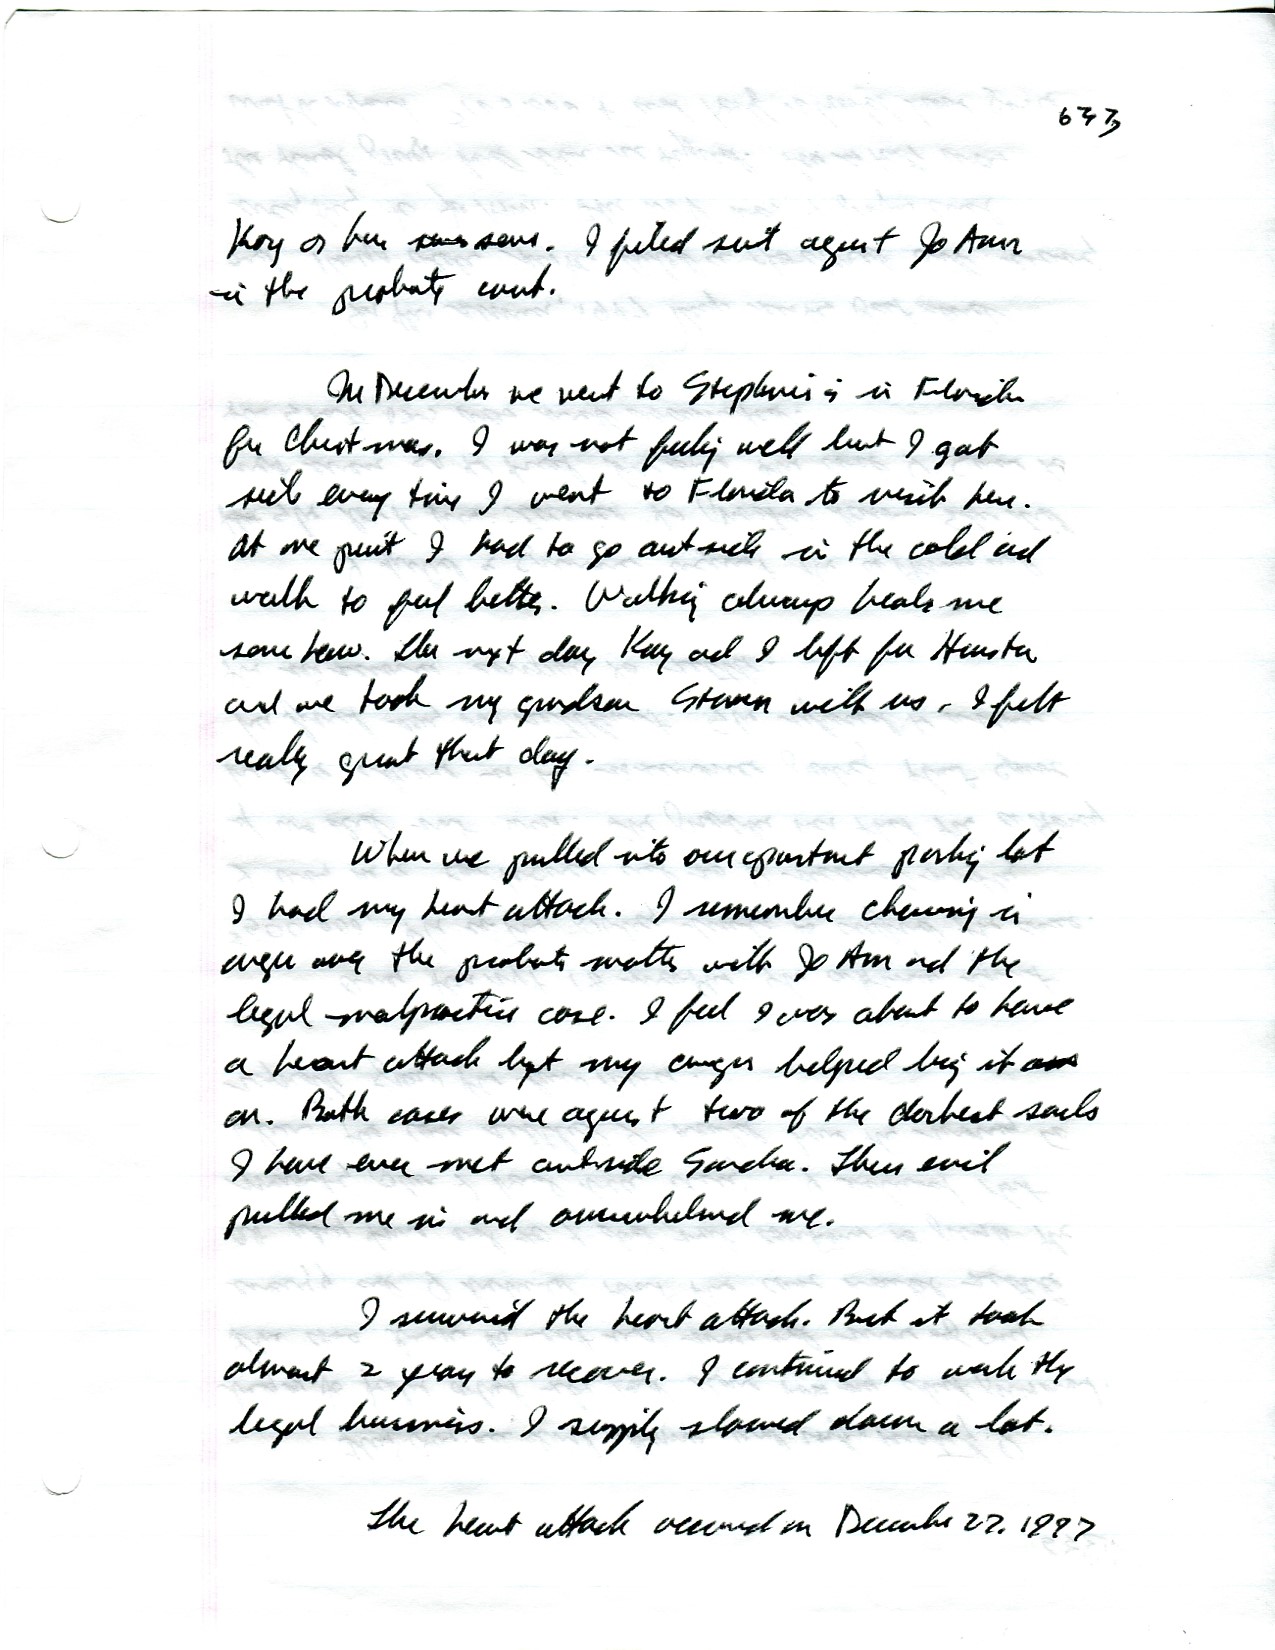 Kay or her sons. I filed suit against Jo Ann
in the probate court.
In December we went to Stephanie's in Florida
for Christmas. I was not feeling well but I got
sick every time I went to Florida to visit her.
At one point I had to go outside in the cold and
walk to feel better. Walking always heals me
some how. The next day Kay and I left for Houston
and we took my grandson Steven with us. I felt
really great that day.
When we pulled into our apartment parking lot
I had my heart attack. I remember chewing in
anger over the probate matter with Jo Ann and the
legal malpractice case. I feel I was about to have
a heart attack but my anger helped bring it
on. Both cases were against two of the darkest souls
I have ever met outside Sandra. Their evil
pulled me in and overwhelmed me.
I survived the heart attack. But it took
almost 2 years to recover. I continued to work the
legal business. I simply slowed down a lot.
The heart attack occurred on December 27, 1997